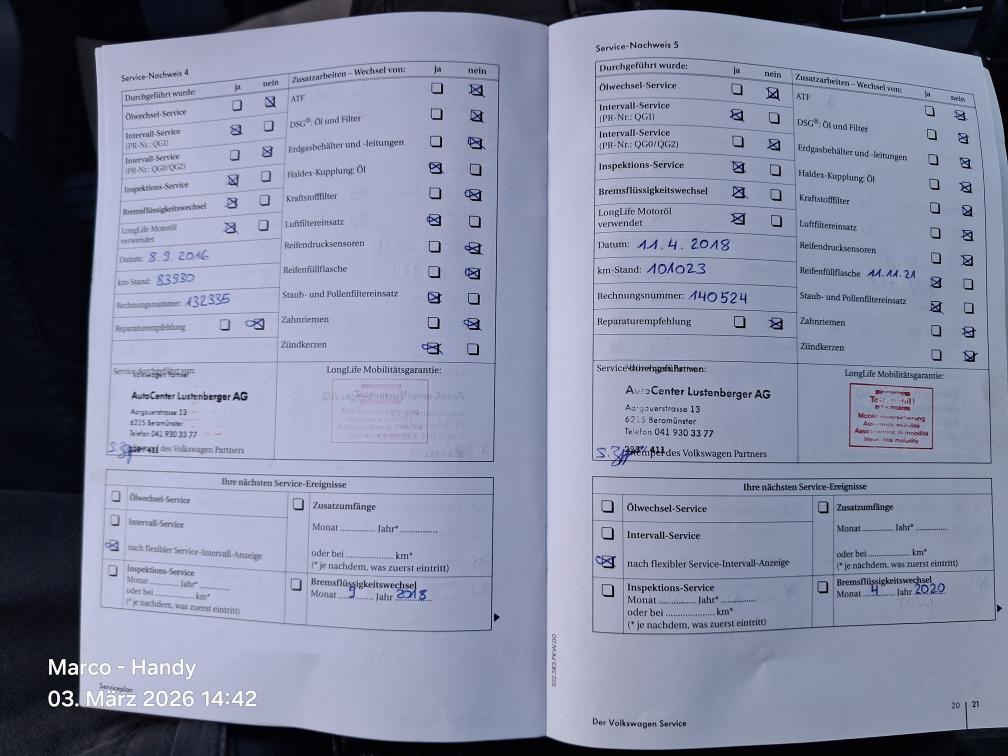 Service-Nachweis 4
Durchgeführt wurde: ja nein
Ölwechsel-Service
Intervall-Service
(PR-Nr.: QG1)
Intervall-Service
(PR-Nr.: QG0/QG2)
Inspektions-Service
Bremsflüssigkeitswechsel
LongLife Motoröl
verwendet
Datum: 8.9.2016
km-Stand: 83930
Rechnungsnummer: 132335
Reparaturempfehlung
Zusatzarbeiten – Wechsel von: ja nein
ATF
DSG®: Öl und Filter
Erdgasbehälter und -leitungen
Haldex-Kupplung: Öl
Kraftstofffilter
Luftfiltereinsatz
Reifendrucksensoren
Reifenfüllflasche
Staub- und Pollenfiltereinsatz
Zahnriemen
Zündkerzen
Service durchgeführt von:
Volkswagen Partner
AutoCenter Lustenberger AG
Aargauerstrasse 13
6215 Beromünster
Telefon 041 930 33 77
Stempel des Volkswagen Partners
LongLife Mobilitätsgarantie:
Ihre nächsten Service-Ereignisse
Ölwechsel-Service
Intervall-Service
nach flexibler Service-Intervall-Anzeige
Inspektions-Service
Monat ............ Jahr* ............
oder bei ............ km*
(* je nachdem, was zuerst eintritt)
Zusatzumfänge
Monat ............ Jahr* ............
oder bei ............ km*
(* je nachdem, was zuerst eintritt)
Bremsflüssigkeitswechsel
Monat 9 Jahr 2018
Serviceplan
Service-Nachweis 5
Durchgeführt wurde: ja nein
Ölwechsel-Service
Intervall-Service
(PR-Nr.: QG1)
Intervall-Service
(PR-Nr.: QG0/QG2)
Inspektions-Service
Bremsflüssigkeitswechsel
LongLife Motoröl
verwendet
Datum: 11.4.2018
km-Stand: 101023
Rechnungsnummer: 140524
Reparaturempfehlung
Zusatzarbeiten – Wechsel von: ja nein
ATF
DSG®: Öl und Filter
Erdgasbehälter und -leitungen
Haldex-Kupplung: Öl
Kraftstofffilter
Luftfiltereinsatz
Reifendrucksensoren
Reifenfüllflasche 11.11.21
Staub- und Pollenfiltereinsatz
Zahnriemen
Zündkerzen
Service durchgeführt von:
AutoCenter Lustenberger AG
Aargauerstrasse 13
6215 Beromünster
Telefon 041 930 33 77
Stempel des Volkswagen Partners
LongLife Mobilitätsgarantie:
Totalmobil!
Mobilitätsversicherung
Assurance mobilité
Assicurazione di mobilità
Insurance mobility
Ihre nächsten Service-Ereignisse
Ölwechsel-Service
Intervall-Service
nach flexibler Service-Intervall-Anzeige
Inspektions-Service
Monat ............ Jahr* ............
oder bei ............ km*
(* je nachdem, was zuerst eintritt)
Zusatzumfänge
Monat ............ Jahr* ............
oder bei ............ km*
(* je nachdem, was zuerst eintritt)
Bremsflüssigkeitswechsel
Monat 4 Jahr 2020
Der Volkswagen Service
20 | 21
Marco - Handy
03. März 2026 14:42